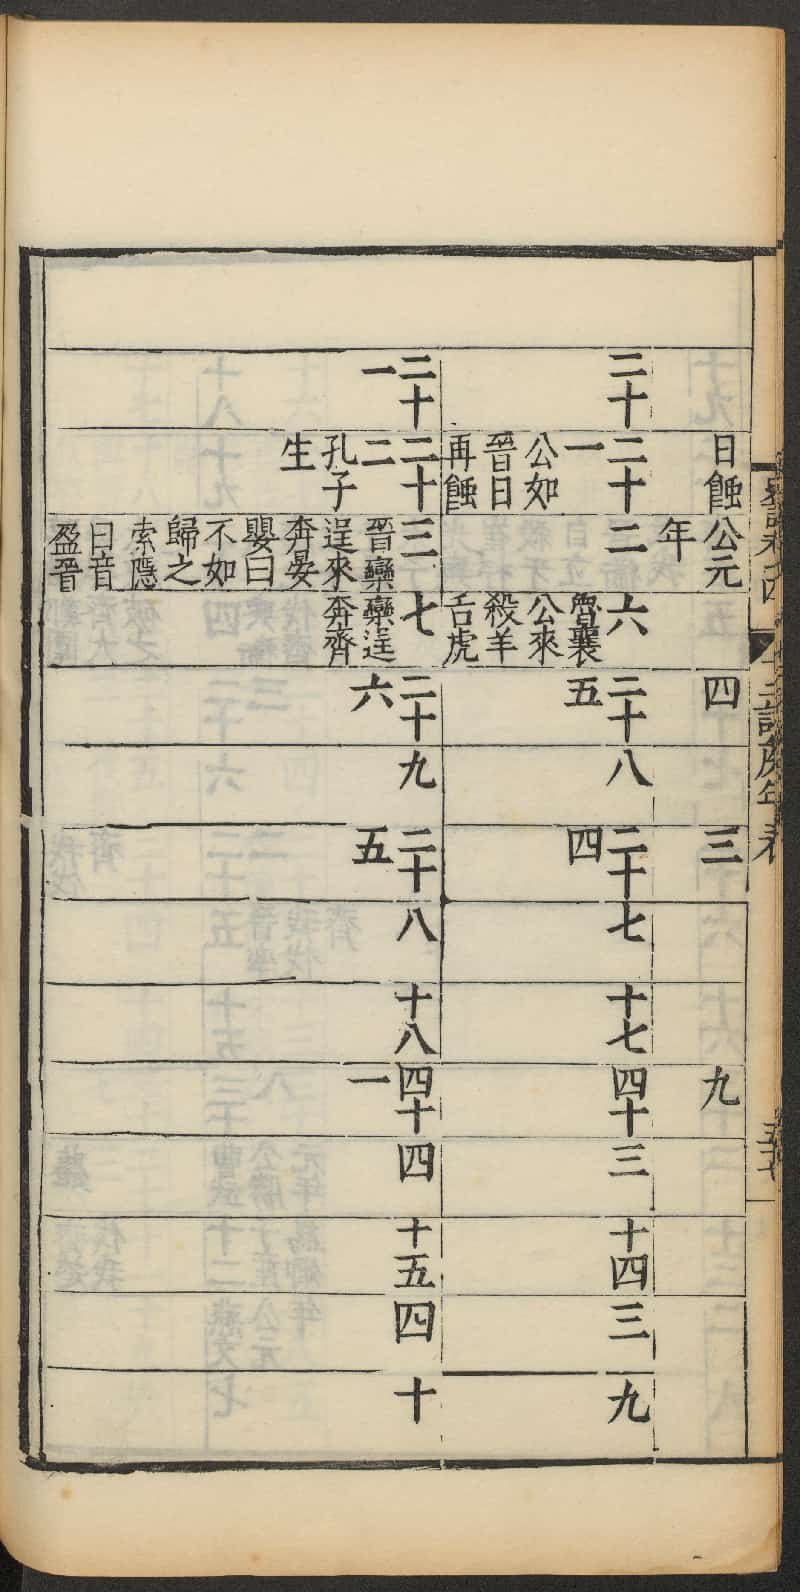 十二諸侯年表
日蝕
公元年
四
三
九
二十
二十一公如晉日再蝕
二
六魯襄公來殺羊舌虎
二十五
八
二十四
七
十七
四十
三
十四
三
九
二十一
二十二孔子生
三晉欒逞來奔晏嬰曰不如歸之索隱曰音盈晉
七欒逞奔齊
二十六
九
二十五
八
十八
四十一
四
十五
四
十